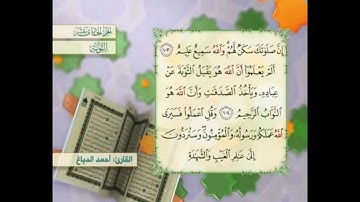 الجزء الحادي عشر
التوبة
إِنَّ صَلَوٰتَكَ سَكَنٌ لَّهُمْ وَٱللَّهُ سَمِيعٌ عَلِيمٌ ١٠٣
أَلَمْ يَعْلَمُوٓا۟ أَنَّ ٱللَّهَ هُوَ يَقْبَلُ ٱلتَّوْبَةَ عَنْ
عِبَادِهِۦ وَيَأْخُذُ ٱلصَّدَقَٰتِ وَأَنَّ ٱللَّهَ هُوَ
ٱلتَّوَّابُ ٱلرَّحِيمُ ١٠٤ وَقُلِ ٱعْمَلُوا۟ فَسَيَرَى
ٱللَّهُ عَمَلَكُمْ وَرَسُولُهُۥ وَٱلْمُؤْمِنُونَ وَسَتُرَدُّونَ
إِلَىٰ عَٰلِمِ ٱلْغَيْبِ وَٱلشَّهَٰدَةِ
القارئ: أحمد الدباغ